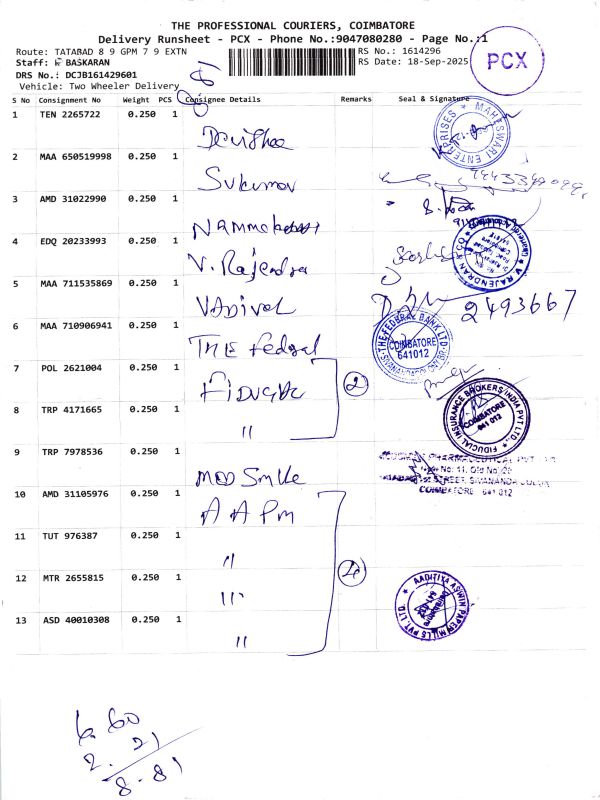 THE PROFESSIONAL COURIERS, COIMBATORE
Delivery Runsheet - PCX - Phone No.:9047080280 - Page No.:1
Route: TATABAD 8 9 GPM 7 9 EXTN
RS No.: 1614296
Staff: K BASKARAN
RS Date: 18-Sep-2025
DRS No.: DCJB161429601
Vehicle: Two Wheeler Delivery
PCX
S No Consignment No Weight PCS Consignee Details Remarks Seal & Signature
1 TEN 2265722 0.250 1
MAHESWARI ENTERPRISES
2 MAA 650519998 0.250 1 Sukumar
3 AMD 31022990 0.250 1
4 EDQ 20233993 0.250 1 V. Rajendra
V. RAJENDRAN & CO
5 MAA 711535869 0.250 1 VADIVEL
2493667
6 MAA 710906941 0.250 1 THE Fedral
THE FEDERAL BANK LTD
COIMBATORE
641012
7 POL 2621004 0.250 1
2
8 TRP 4171665 0.250 1 "
FIDUCIAL INSURANCE BROKERS INDIA PVT LTD.,
COIMBATORE
641 012
9 TRP 7978536 0.250 1
COIMBATORE 641 012
10 AMD 31105976 0.250 1 AAPM
11 TUT 976387 0.250 1 "
4
12 MTR 2655815 0.250 1 "
13 ASD 40010308 0.250 1 "
AADITIYA ASWIN PAPER MILLS PVT. LTD.
6.60
2.21
8.81